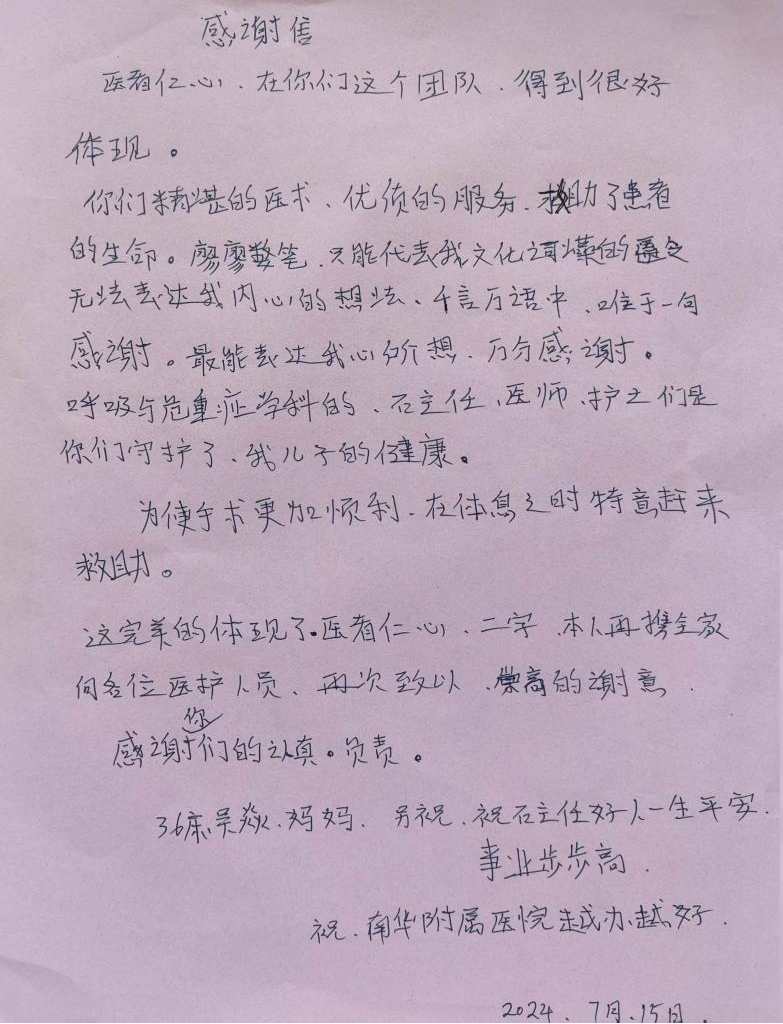 感谢信
医者仁心、在你们这个团队、得到很好
体现。
你们精湛的医术、优质的服务、救助了患者
的生命。廖廖数笔、只能代表我文化词藻的匮乏
无法表达我内心的想法、千言万语中、唯于一句
感谢。最能表达我心所想、万分感谢。
呼吸与危重症学科的、石主任、医师、护士们是
你们守护了、我儿子的健康。
为使手术更加顺利、在休息之时特意赶来
救助。
这完美的体现了。医者仁心、二字、本人再携全家
向各位医护人员、再次致以、崇高的谢意、
感谢你们的认真。负责。
36床吴焱、妈妈、另祝、祝石主任好人一生平安、
事业步步高、
祝、南华附属医院越办越好、
2024、7月、15日、